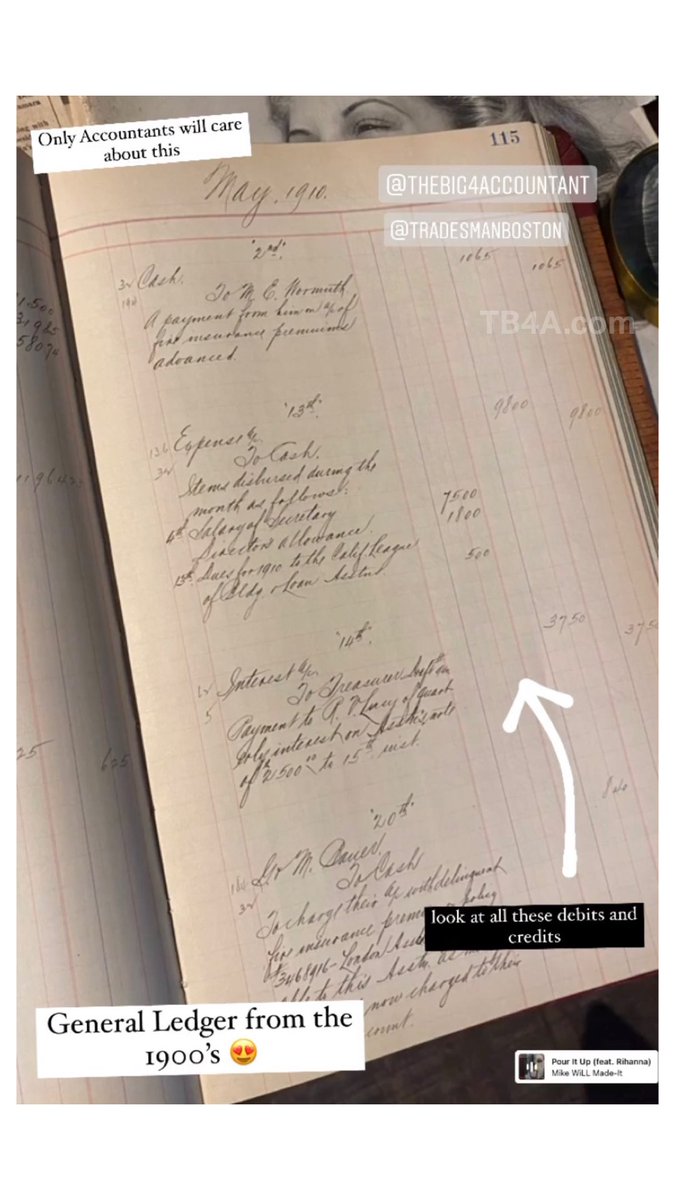 Only Accountants will care
about this
115
@THEBIG4ACCOUNTANT
@TRADESMANBOSTON
TB4A.com
May, 1910.
"2nd"
32 Cash. 1065 1065
194 To M. E. Wormuth
A payment from him on a/c of
fire insurance premiums
advanced.
"13th"
136 Expense a/c 9800 9800
32 To Cash.
Items disbursed during the
month as follows:
4th Salary of Secretary 7500
Directors allowance. 1800
13th Dues for 1910 to the Calif. League
of Bldg & Loan Asstns 500
"14th"
Interest a/c 3750 3750
5 To Treasurer
Payment to R. Lucy of quart
erly interest on Asstn's note
of 2500 to 15th inst.
"20th"
M. Bauer
To Cash
To charge their a/c with delinquent
fire insurance policy
London
to this Asstn. as
now charged to their
count.
1,500
31925
58074
25 625
look at all these debits and
credits
General Ledger from the
1900's 😍
Pour It Up (feat. Rihanna)
Mike WiLL Made-It